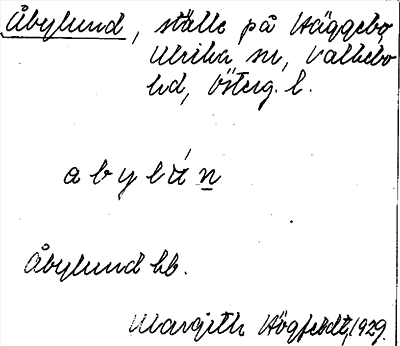 Åbylund, ställe på Häggebo,
Ulrika sn, Valkebo
hd, Österg. l.
a b y l ú n
Åbylund hb.
Margith Högfeldt, 1929.